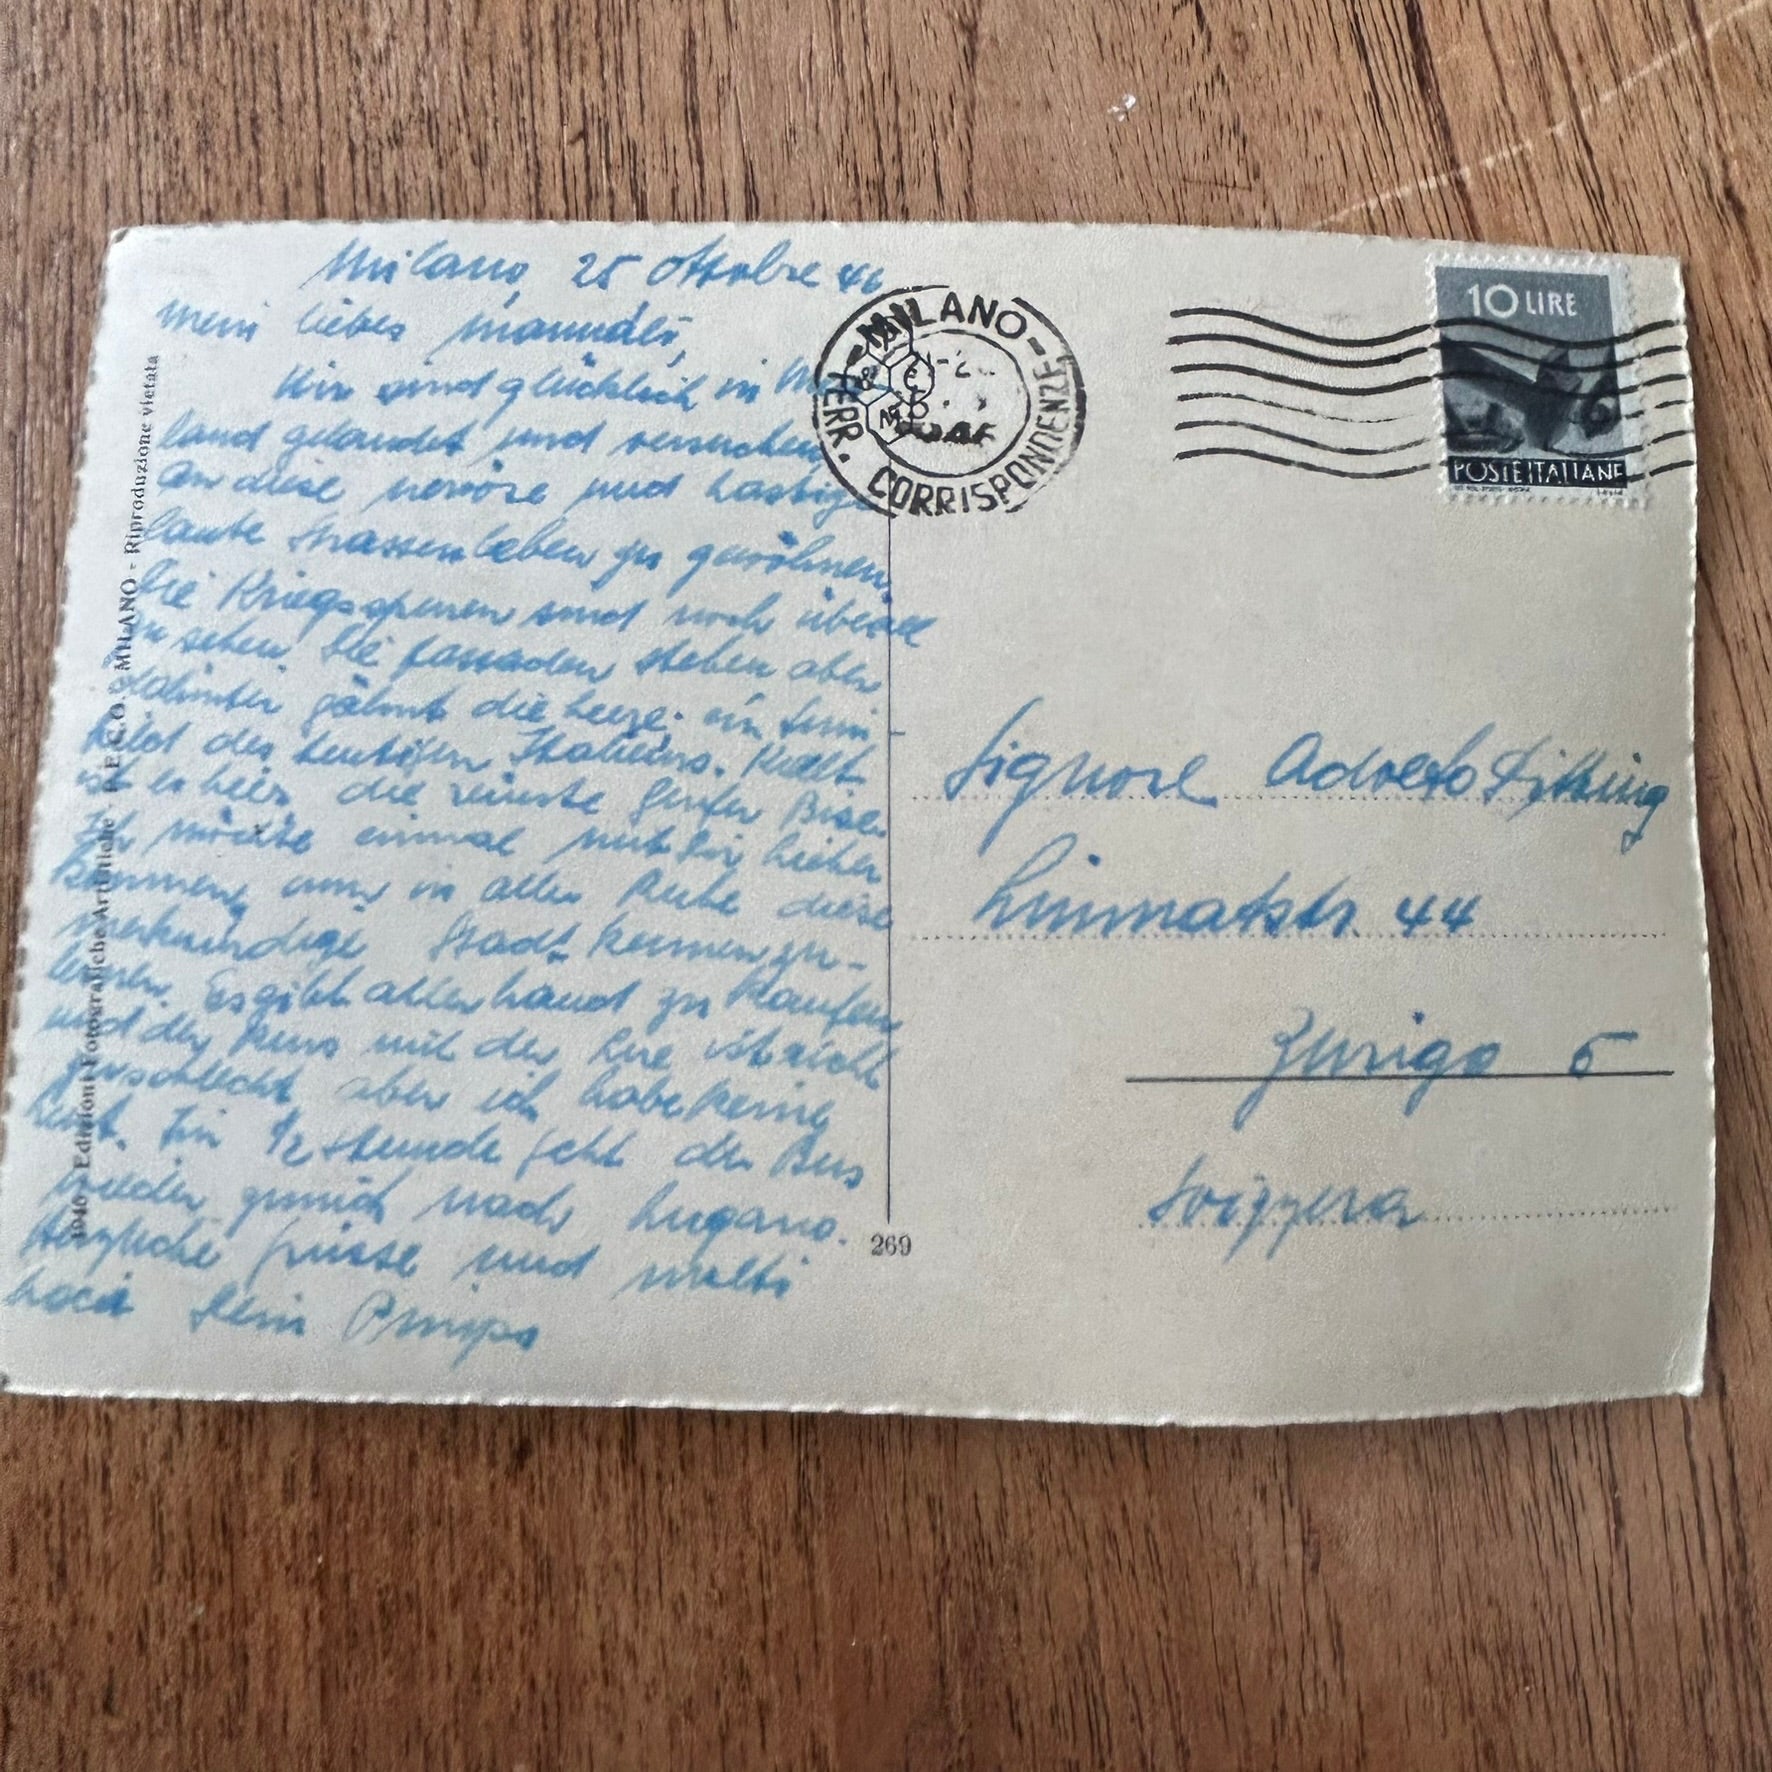 Milano, 25 ottobre 46
Mein liebes Manndli,
Wir sind glücklich in Mai-
land gelandet und versuchen
an diese nervöse und hastige
laute Strassenleben zu gewöhnen.
Die Kriegsspuren sind noch überall
zu sehen. Die Fassaden stehen aber
dahinter gähnt die Leere: ein Sinn-
bild des heutigen Italiens. Kalt
ist es hier, die reinste Genfer Bise.
Ich möchte einmal mit Dir hieher
kommen, um in aller Ruhe diese
merkwürdige Stadt kennenzu-
lernen. Es gibt allerhand zu kaufen
und der Kurs mit der Lire ist nicht
so schlecht aber ich habe keine
Lust. In 1/2 Stunde geht der Bus
wieder zurück nach Lugano.
Herzliche Grüsse und molti
baci Dein
1946 - Edizioni Fotografiche Artistiche MILANO - Riproduzione vietata
269
MILANO
FERR. CORRISPONDENZE
10 LIRE
POSTE ITALIANE
Signore
Limmatstr 44
Zurigo 5
Svizzera